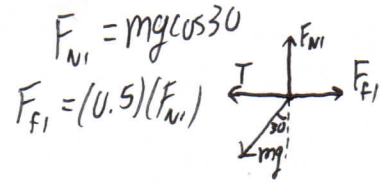 F_N1 = mgcos30
F_f1 = (0.5)(F_N1)
F_N1
T
F_f1
30
mg